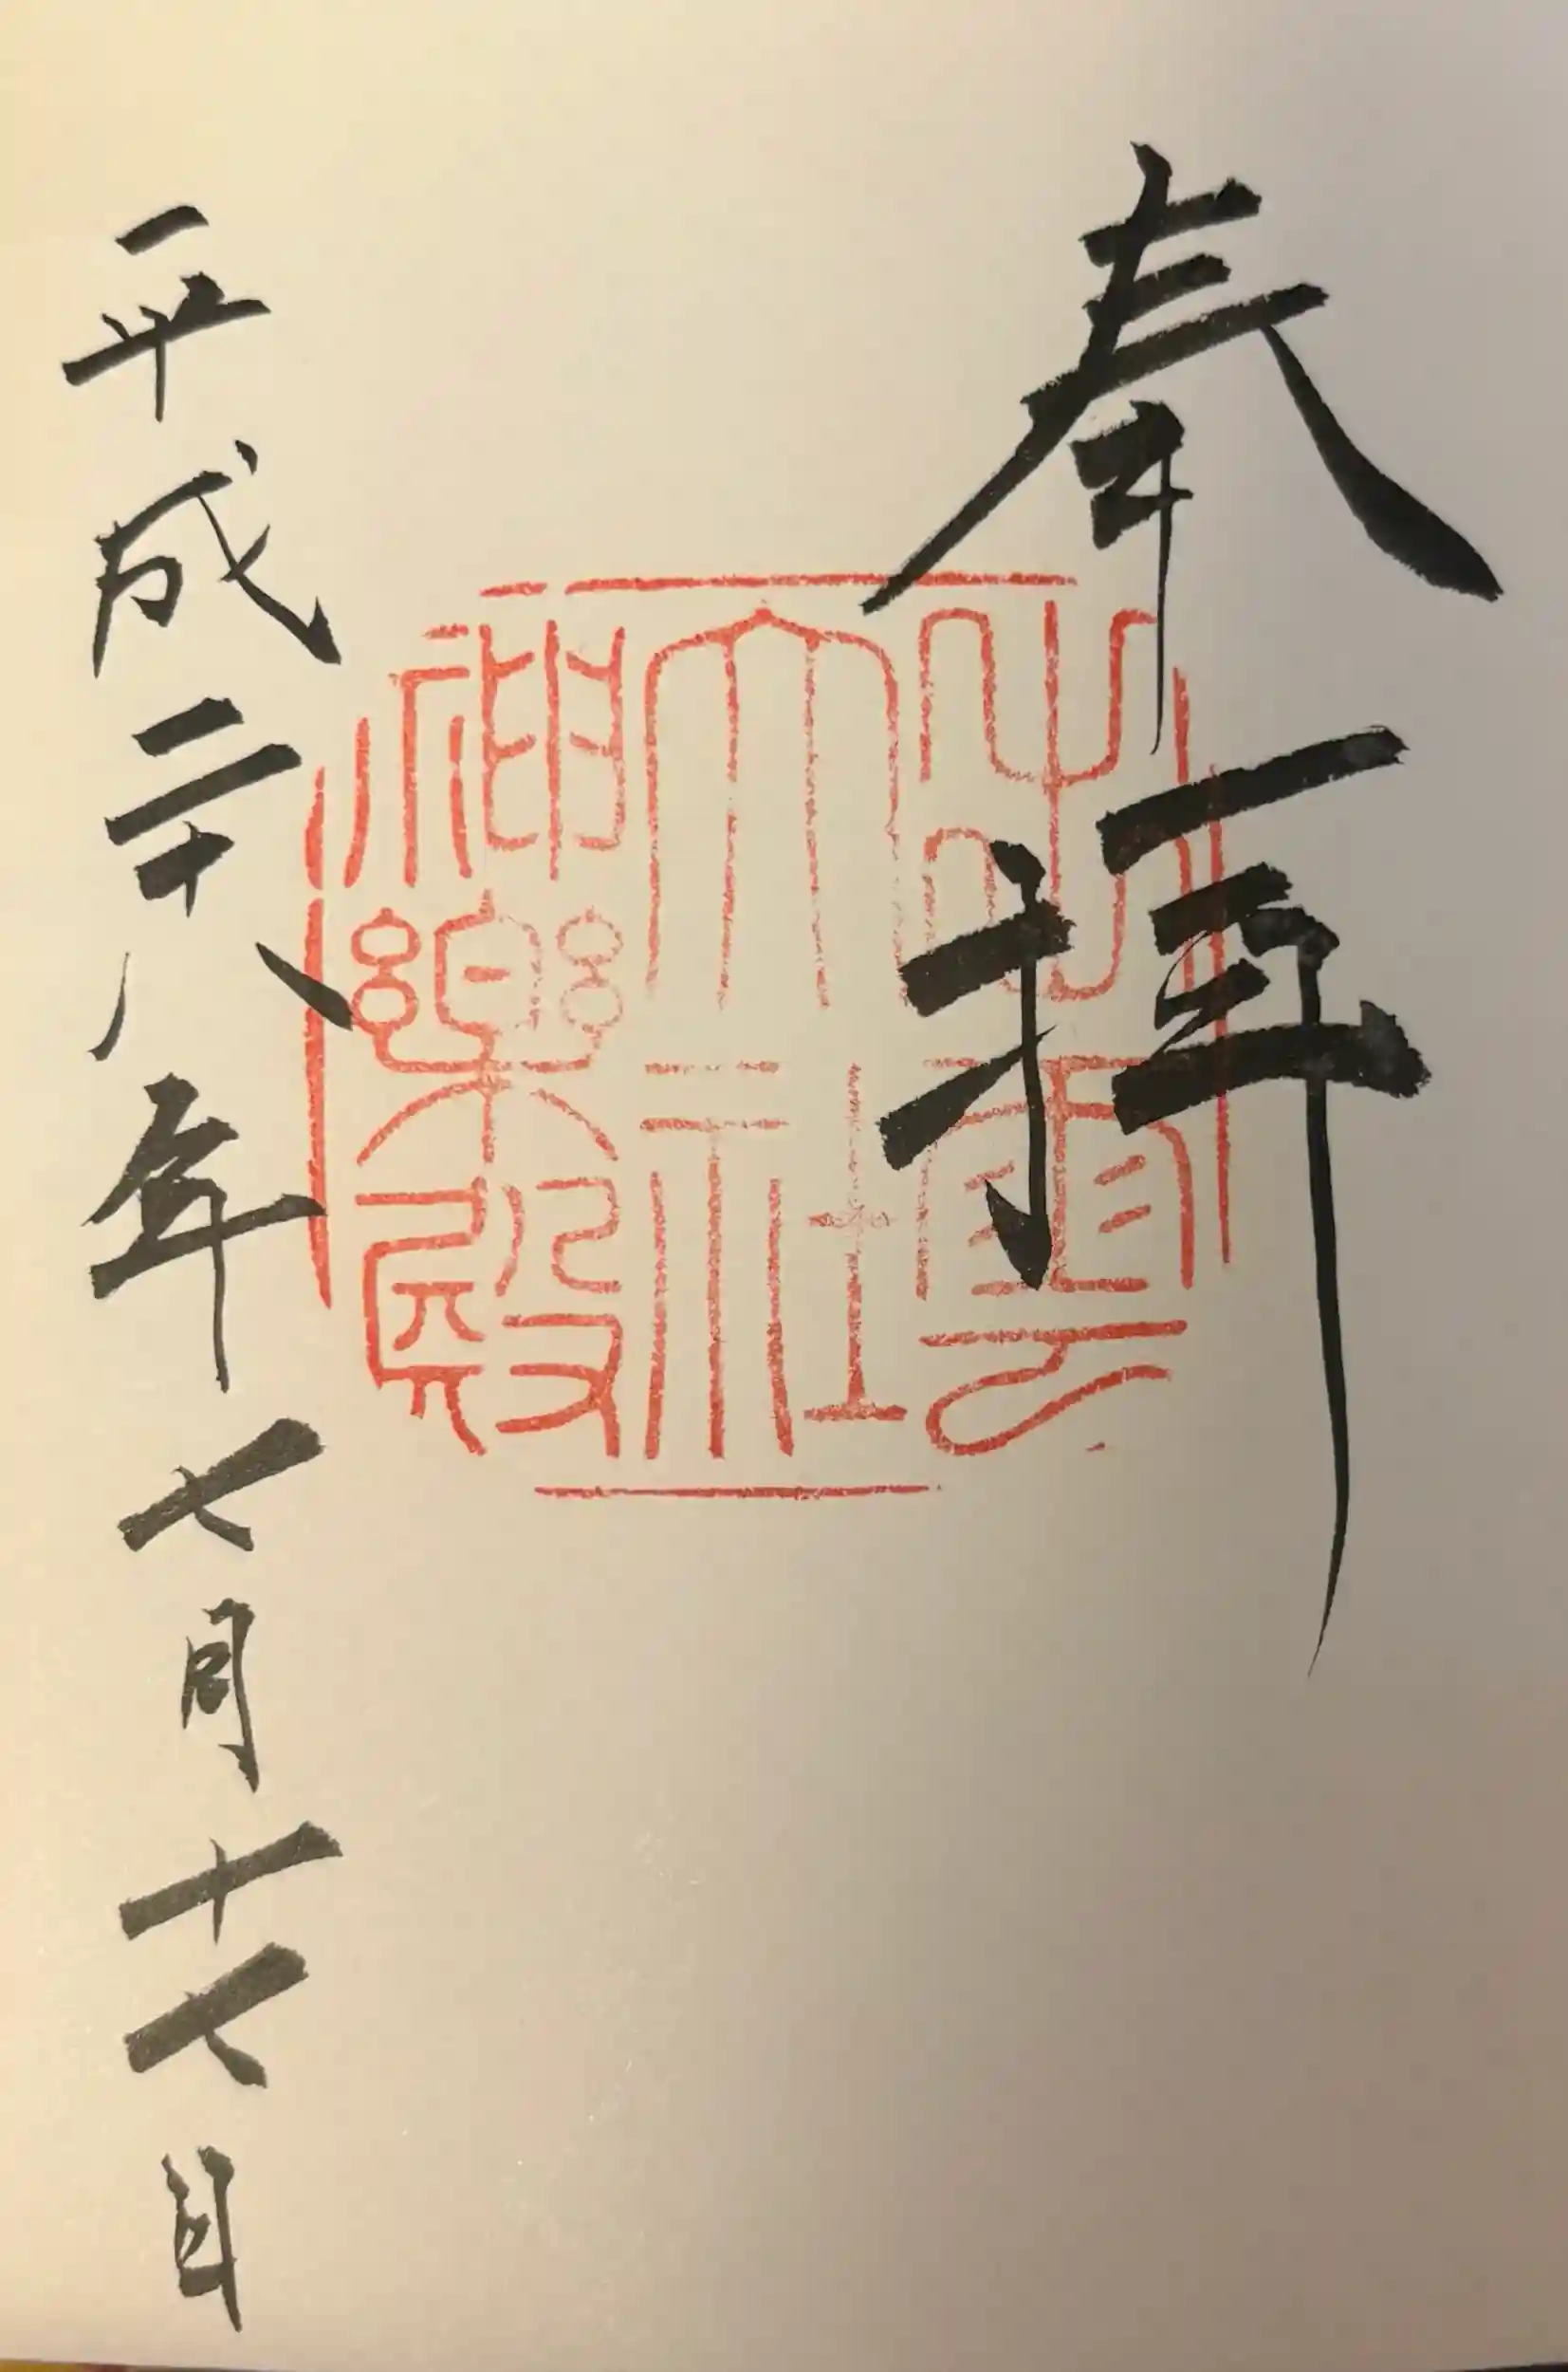 奉拝
出雲
大社
神楽殿
平成二十八年七月十七日